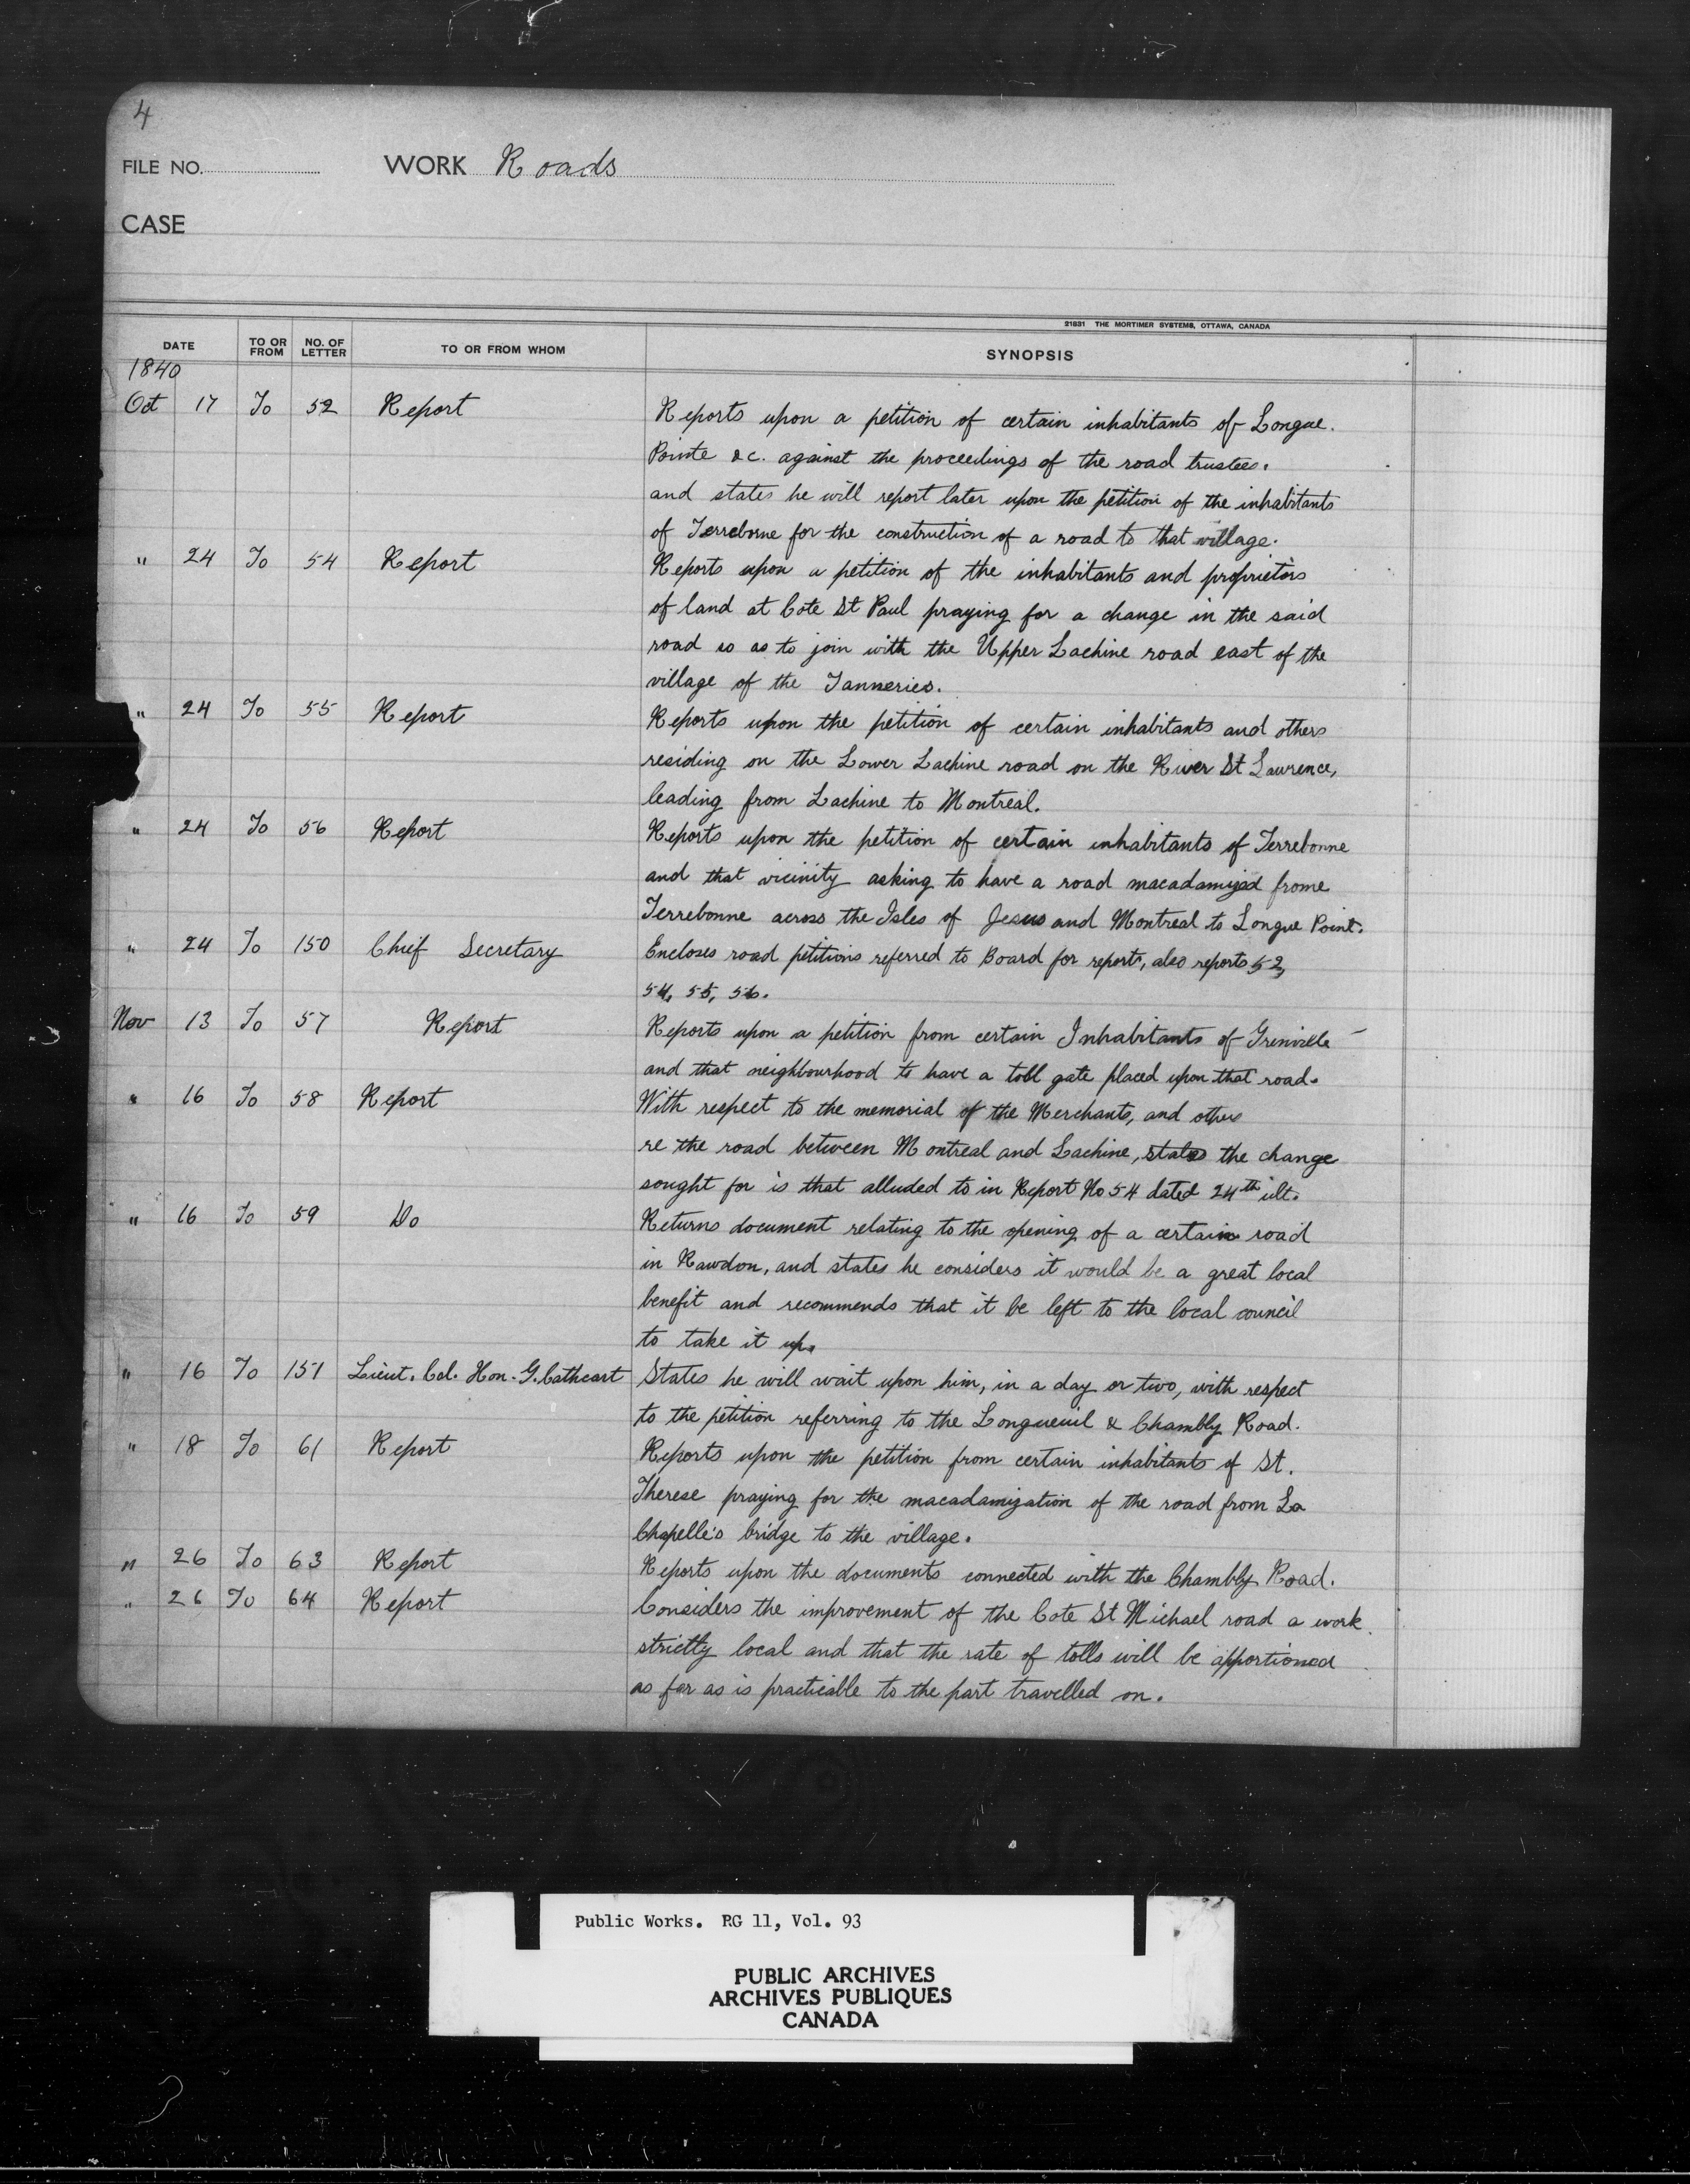 4
FILE NO. WORK Roads
CASE
21831 THE MORTIMER SYSTEMS, OTTAWA, CANADA
DATE TO OR FROM NO. OF LETTER TO OR FROM WHOM SYNOPSIS
1840
Oct 17 To 52 Report Reports upon a petition of certain inhabitants of Longue.
Pointe &c. against the proceedings of the road trustees.
and states he will report later upon the petition of the inhabitants
of Terrebonne for the construction of a road to that village.
" 24 To 54 Report Reports upon a petition of the inhabitants and proprietors
of land at Cote St Paul praying for a change in the said
road so as to join with the Upper Lachine road east of the
village of the Tanneries.
" 24 To 55 Report Reports upon the petition of certain inhabitants and others
residing on the Lower Lachine road on the River St Lawrence,
leading from Lachine to Montreal.
" 24 To 56 Report Reports upon the petition of certain inhabitants of Terrebonne
and that vicinity asking to have a road macadamized frome
Terrebonne across the Isles of Jesus and Montreal to Longue Point.
" 24 To 150 Chief Secretary Encloses road petitions referred to Board for report, also reports 52,
54, 55, 56.
Nov 13 To 57 Report Reports upon a petition from certain Inhabitants of Grenville
and that neighbourhood to have a toll gate placed upon that road.
" 16 To 58 Report With respect to the memorial of the Merchants, and others
re the road between Montreal and Lachine, states the change
sought for is that alluded to in Report No 54 dated 24th ult.
" 16 To 59 Do Returns document relating to the opening of a certain road
in Rawdon, and states he considers it would be a great local
benefit and recommends that it be left to the local council
to take it up.
" 16 To 151 Lieut. Col. Hon. G. Cathcart States he will wait upon him, in a day or two, with respect
to the petition referring to the Longueuil & Chambly Road.
" 18 To 61 Report Reports upon the petition from certain inhabitants of St.
Therese praying for the macadamization of the road from La
Chapelle's bridge to the village.
" 26 To 63 Report Reports upon the documents connected with the Chambly Road.
" 26 To 64 Report Considers the improvement of the Cote St Michael road a work
strictly local and that the rate of tolls will be apportioned
as far as is practicable to the part travelled on.
Public Works. RG 11, Vol. 93
PUBLIC ARCHIVES
ARCHIVES PUBLIQUES
CANADA